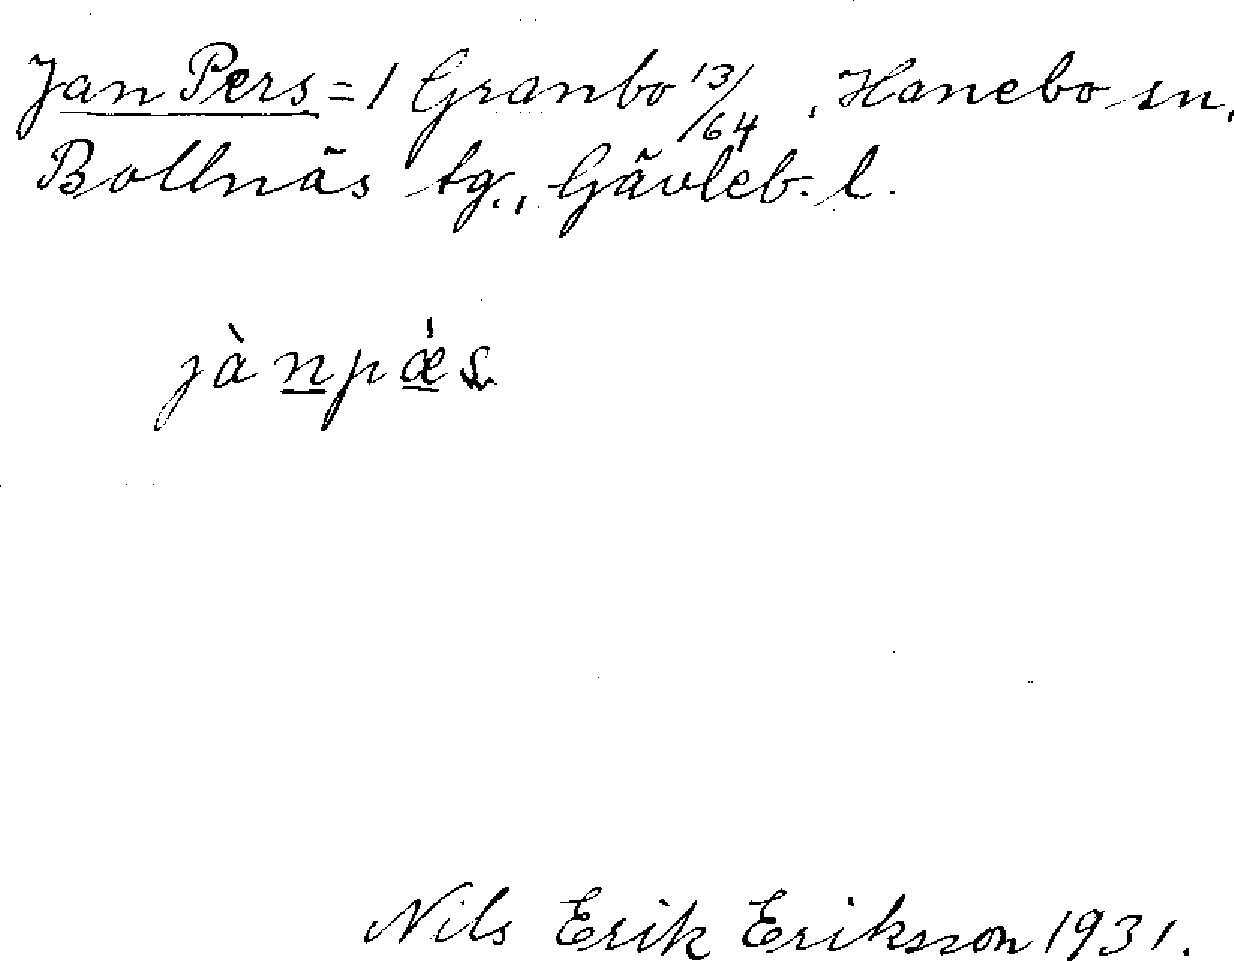 Jan Pers = 1 Granbo 13/64, Hanebo sn,
Bollnäs tg., Gävleb. l.
jànpǽs
Nils Erik Eriksson 1931.